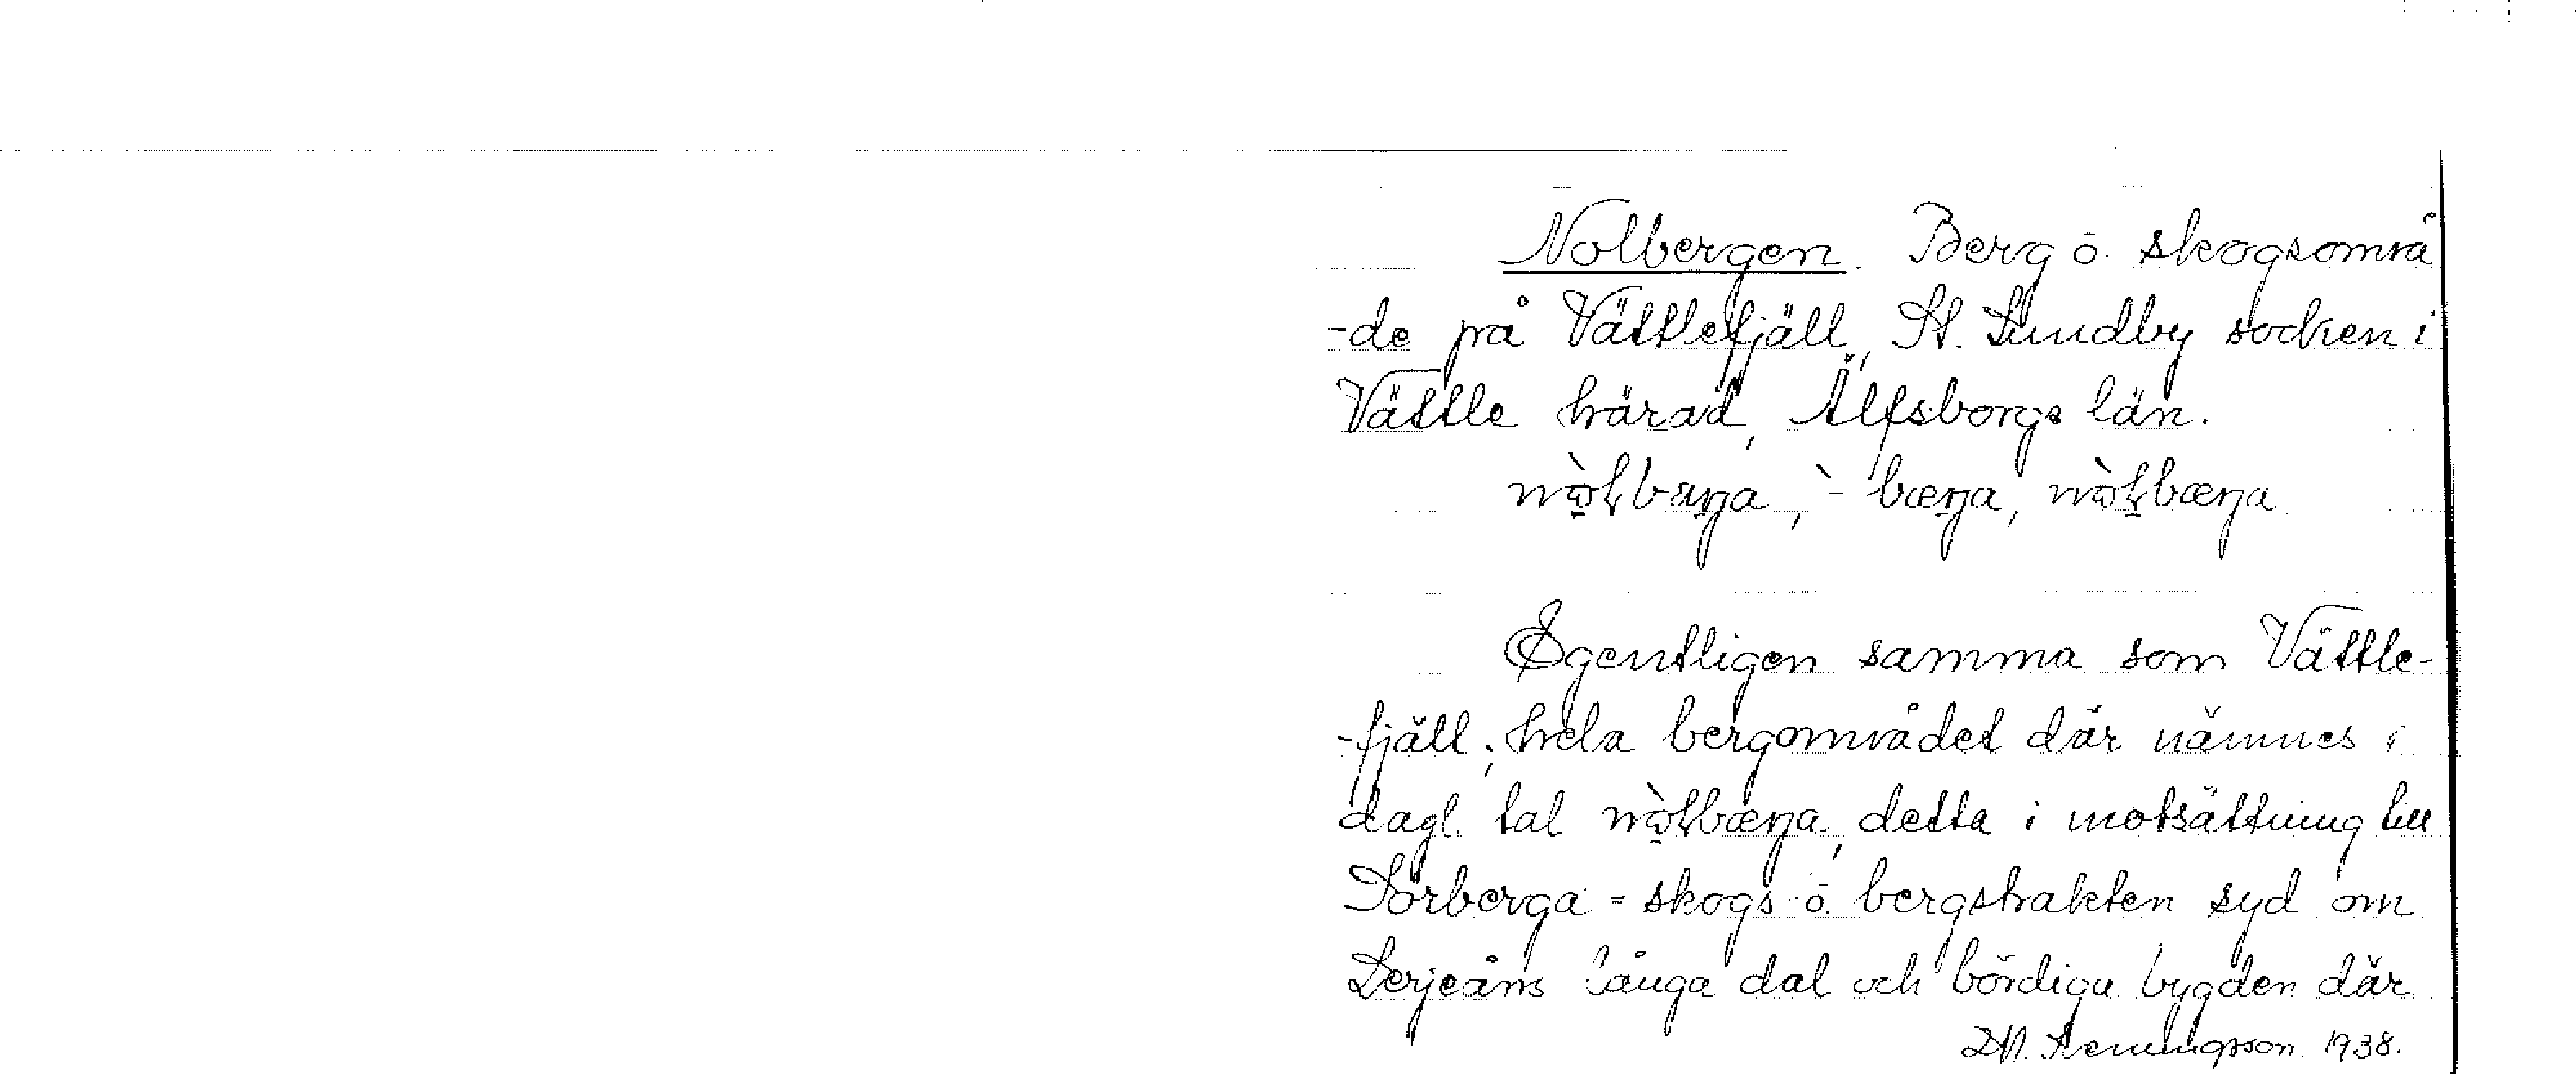 Nolbergen. Berg o. skogsområ
-de på Vättlefjäll, St. Lundby socken i
Vättle härad, Älfsborgs län.
Egentligen samma som Vättle-
-fjäll; hela bergområdet där nämnes i
dagl. tal detta i motsättning till
Sörberga = skogs- o. bergstrakten syd om
Lerjeåns långa dal och bördiga bygden där
1938.